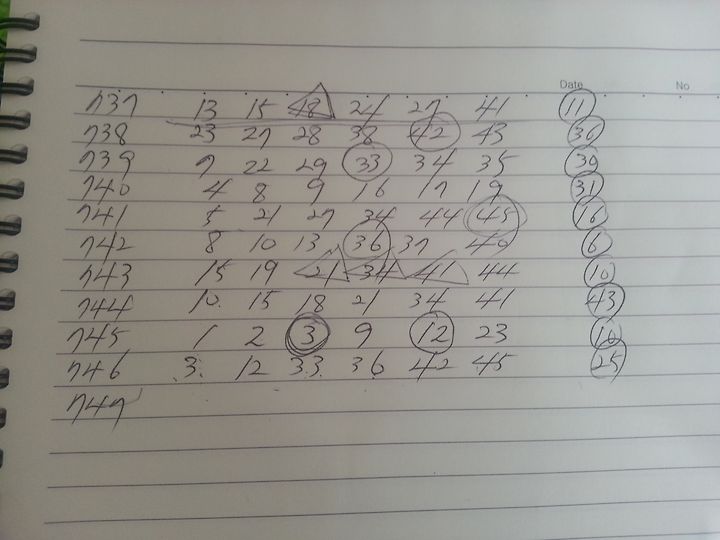 Date No
737 13 15 18 24 27 41 11
738 23 27 28 38 42 43 36
739 7 22 29 33 34 35 30
740 4 8 9 16 17 19 31
741 5 21 27 34 44 45 16
742 8 10 13 36 37 40 6
743 15 19 21 34 41 44 10
744 10. 15 18 21 34 41 43
745 1 2 3 9 12 23 10
746 3. 12 33 36 42 45 25
747